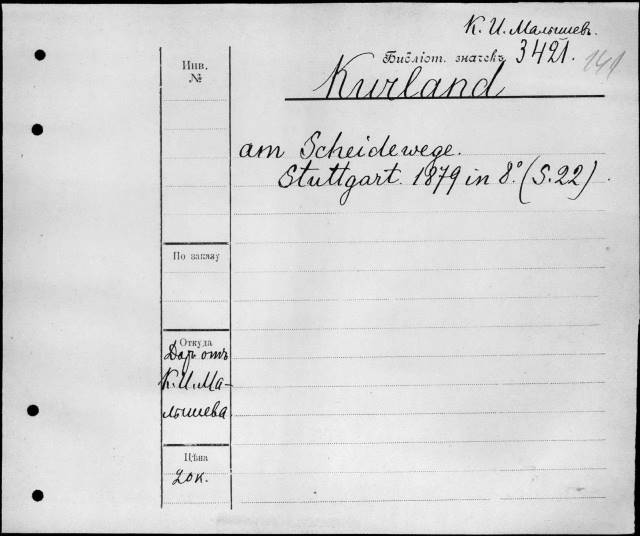 К. И. Малышевъ.
Библіот. значекъ 3421.
Инв.
№
Kurland
am Scheidewege.
Stuttgart. 1879 in 8.° (S. 22).
По заказу
Откуда
Даръ отъ
К. И. Ма-
лышева
Цѣна
20к.